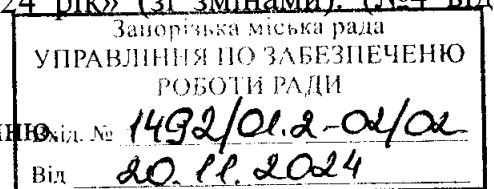 24 рік» (зі змінами). (№4 від
Запорізька міська рада
УПРАВЛІННЯ ПО ЗАБЕЗПЕЧЕНЮ
РОБОТИ РАДИ
нню Вхід. № 1492/01.2-02/02
Від 20.11.2024